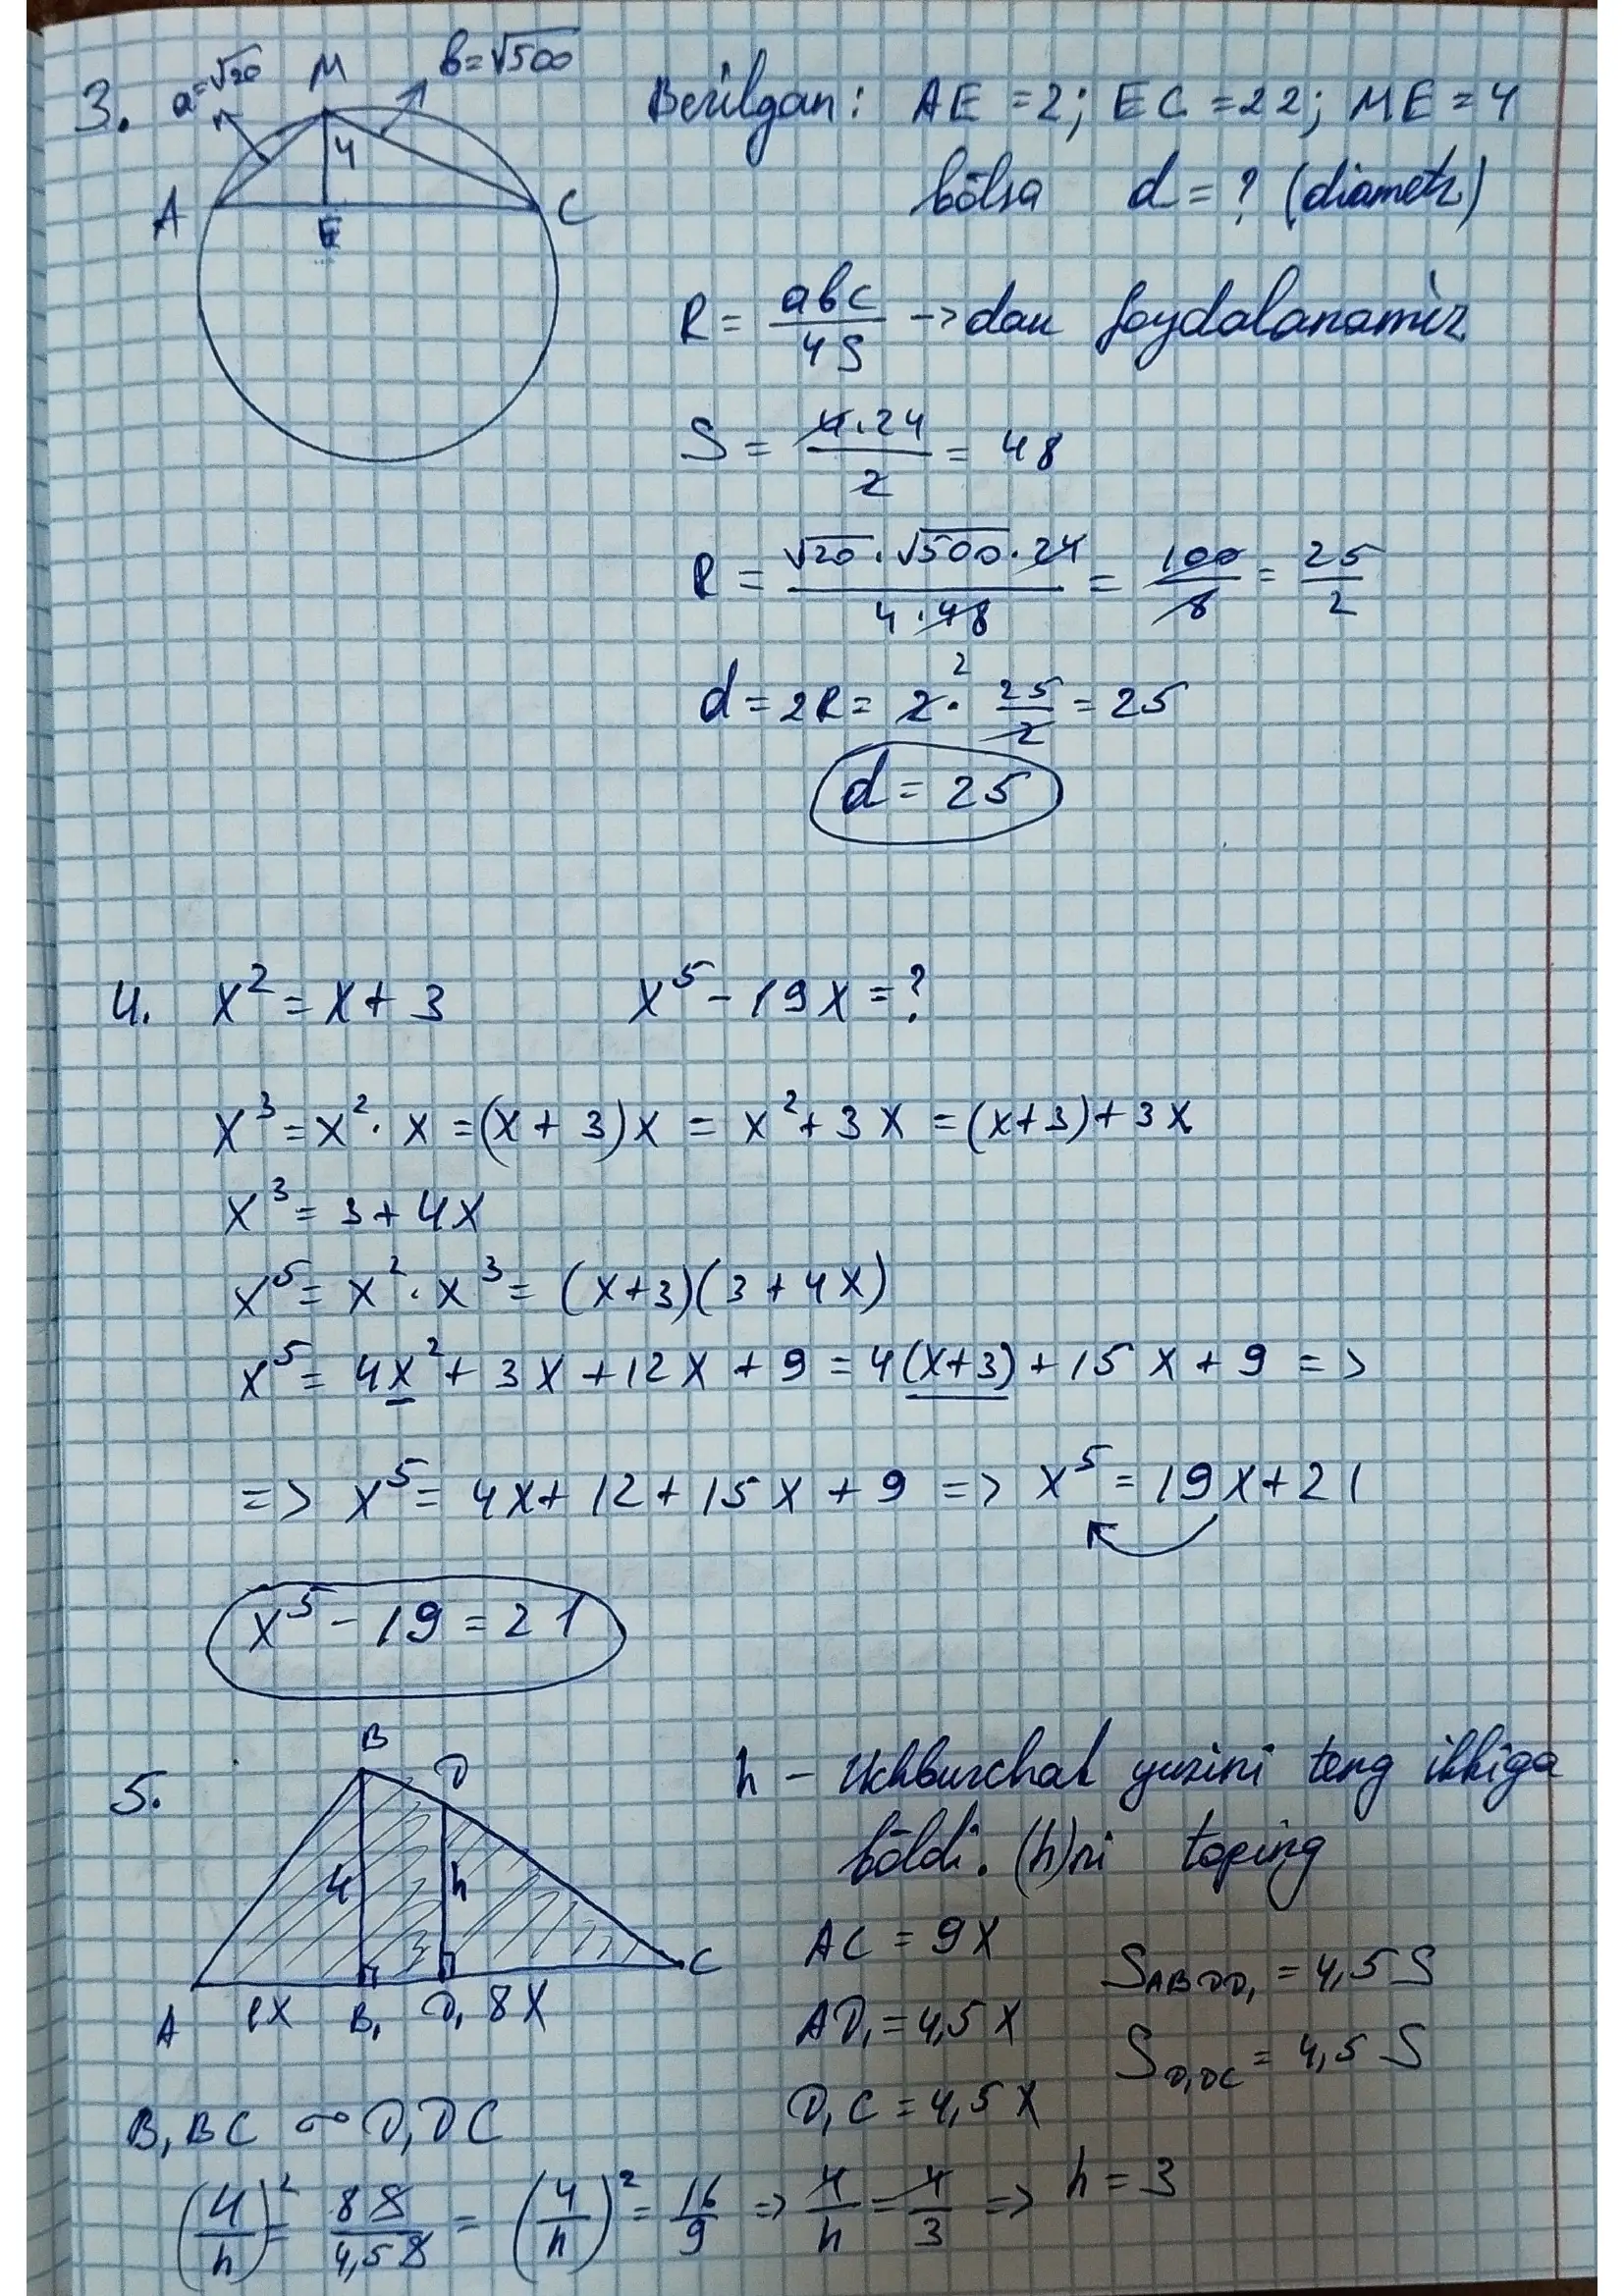 3. a=√20 M b=√500
4
A E C
Berilgan: AE = 2; EC = 22; ME = 4
bōlsa d = ? (diametr)
R = abc/4S -> dan foydalanamiz
S = 4·24/2 = 48
R = √20·√500·24/4·48 = 100/8 = 25/2
d = 2R = 2· 25/2 = 25
d = 25
4. x² = x + 3 x⁵ - 19x = ?
x³ = x² · x = (x + 3)x = x² + 3x = (x+3) + 3x
x³ = 3 + 4x
x⁵ = x² · x³ = (x+3)(3 + 4x)
x⁵ = 4x² + 3x + 12x + 9 = 4(x+3) + 15x + 9 =>
=> x⁵ = 4x + 12 + 15x + 9 => x⁵ = 19x + 21
x⁵ - 19 = 21
5. B D
4 h
A 1x B₁ D₁ 8x C
h - uchburchak yuzini teng ikkiga
bōldi. (h)ni toping
AC = 9x
S_ABDD₁ = 4,5 S
AD₁ = 4,5x
S_D₁DC = 4,5 S
D₁C = 4,5x
B₁BC ∾ D₁DC
(4/h)² = 8S/4,5S = (4/h)² = 16/9 => 4/h = 4/3 => h = 3